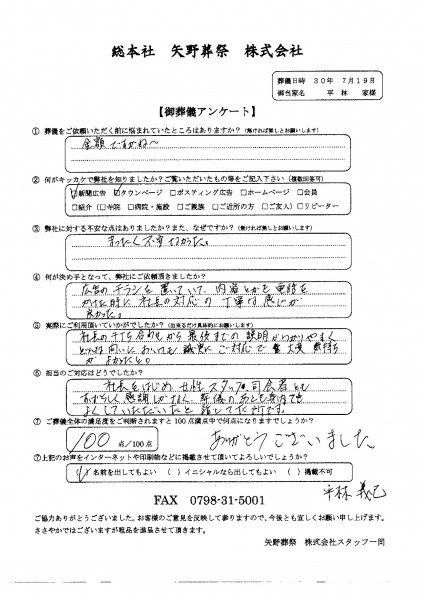 総本社 矢野葬祭 株式会社
葬儀日時 30年 7月19日
御当家名 平林 家様
【御葬儀アンケート】
① 葬儀をご依頼いただく前に悩まれていたところはありますか？(無ければ無しとお願いします)
金額ですかね〜
② 何がキッカケで弊社を知りましたか？ご覧いただいたもの等をご記入下さい(複数回答可)
☑新聞広告 ☑タウンページ □ポスティング広告 □ホームページ □会員
□紹介(□寺院 □病院・施設 □ご親族 □ご近所の方 □ご友人) □リピーター
③ 弊社に対する不安な点はありましたか？また、なぜですか？(無ければ無しとお願いします)
まったく不安なかった。
④ 何が決め手となって、弊社にご依頼頂きましたか？
広告のチラシを置いていて、内容とかを電話を
かけた時に社長の対応の丁寧な感じが
良かった。
⑤ 実際にご利用頂いていかがでしたか？(出来るだけ具体的にお願いします)
社長の打ち合わせから最後までの説明がわかりやすく
どんな問いにおいても誠実にご対応で大変気持ち
がよかったと。
⑥ 担当のご対応はどうでしたか？
社長をはじめ女性スタッフ、司会者とも
すばらしく感謝しかなく、葬儀のあとも案内でも
よくしていただいたと話してた所です。
⑦ ご葬儀全体の満足度をご判断されますと100点満点中で何点になりますでしょうか？
100 点/100点
ありがとうございました
⑦上記のお声をインターネットや印刷物などに掲載させて頂いてよろしいでしょうか？
(✓)名前を出してもよい ( )イニシャルなら出してもよい ( )掲載不可
平林 義己
FAX 0798-31-5001
ご協力ありがとうございました。お客様のご意見を反映して参りますので、今後とも宜しくお願い申し上げます。
ささやかではございますが粗品を進呈させて頂きます。
矢野葬祭 株式会社スタッフ一同